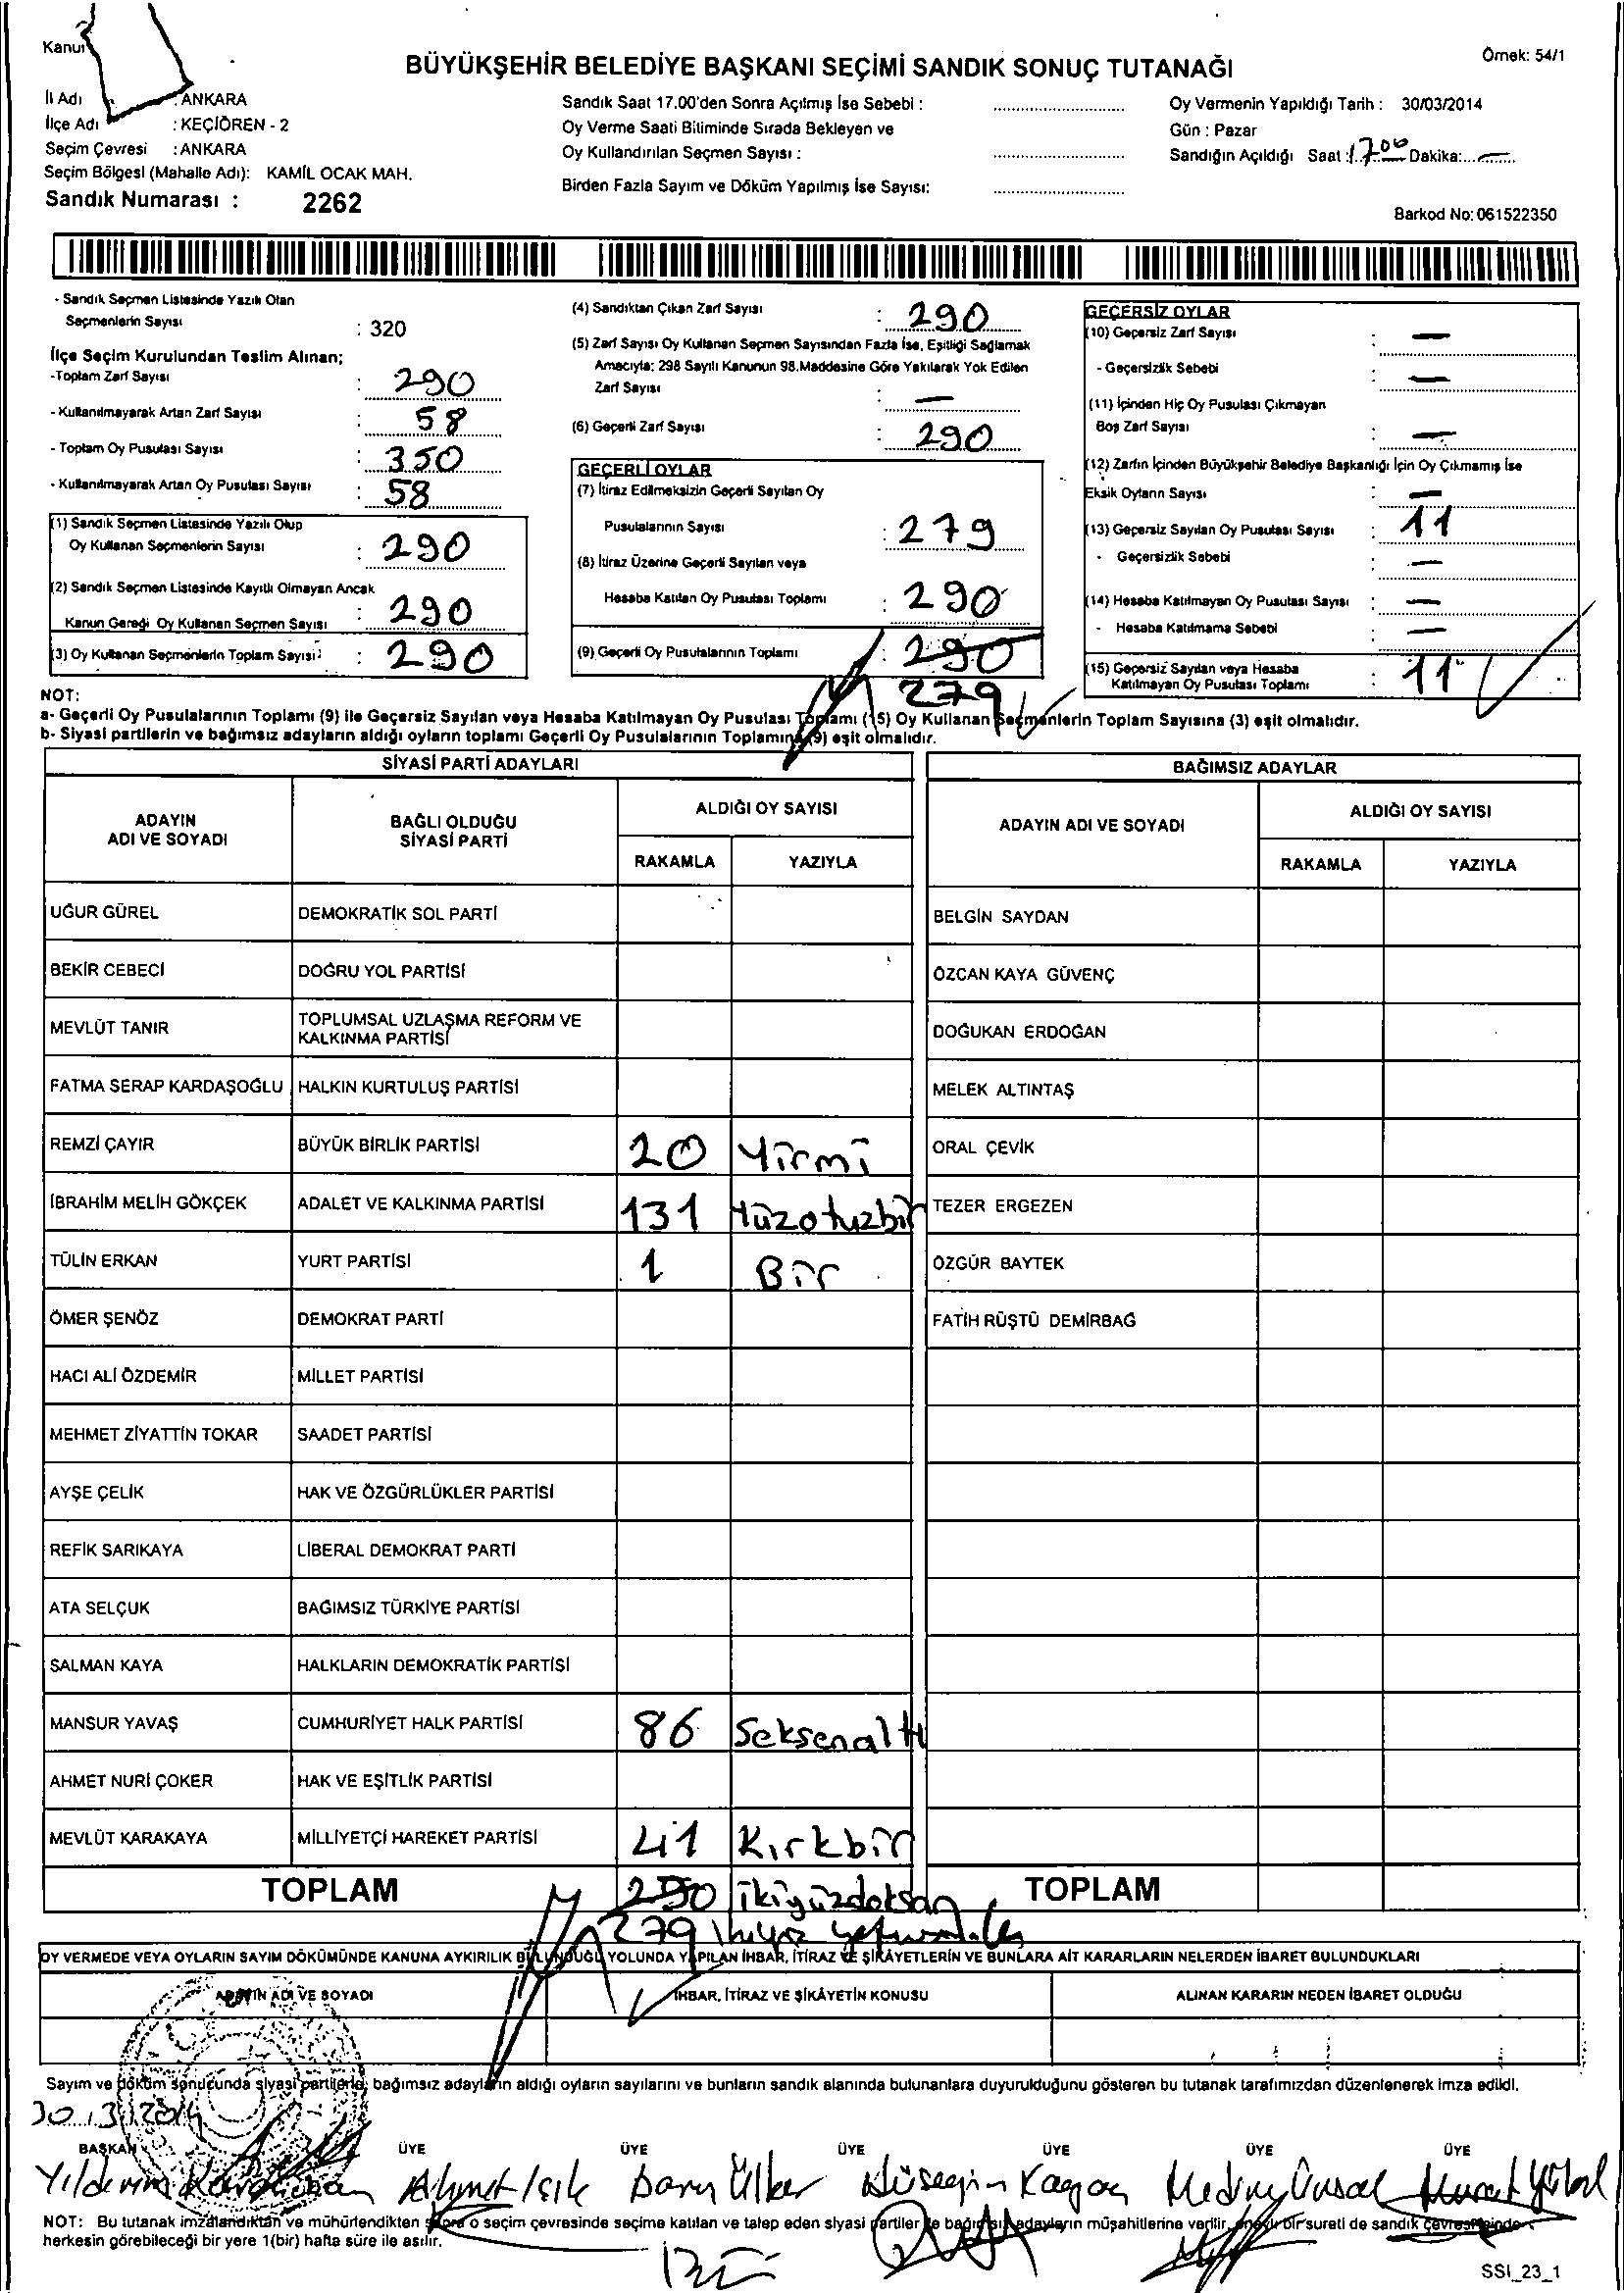 Kanu
BÜYÜKŞEHİR BELEDİYE BAŞKANI SEÇİMİ SANDIK SONUÇ TUTANAĞI
Örnek: 54/1
İl Adı : ANKARA
İlçe Adı : KEÇİÖREN - 2
Seçim Çevresi : ANKARA
Seçim Bölgesi (Mahalle Adı): KAMİL OCAK MAH.
Sandık Numarası : 2262
Sandık Saat 17.00'den Sonra Açılmış İse Sebebi :
Oy Verme Saati Bitiminde Sırada Bekleyen ve
Oy Kullandırılan Seçmen Sayısı :
Birden Fazla Sayım ve Döküm Yapılmış İse Sayısı:
Oy Vermenin Yapıldığı Tarih : 30/03/2014
Gün : Pazar
Sandığın Açıldığı Saat : 17 00 Dakika: —
Barkod No: 061522350
- Sandık Seçmen Listesinde Yazılı Olan
Seçmenlerin Sayısı : 320
İlçe Seçim Kurulundan Teslim Alınan;
-Toplam Zarf Sayısı : 290
- Kullanılmayarak Artan Zarf Sayısı : 58
- Toplam Oy Pusulası Sayısı : 350
- Kullanılmayarak Artan Oy Pusulası Sayısı : 58
(1) Sandık Seçmen Listesinde Yazılı Olup
Oy Kullanan Seçmenlerin Sayısı : 290
(2) Sandık Seçmen Listesinde Kayıtlı Olmayan Ancak
Kanun Gereği Oy Kullanan Seçmen Sayısı : 290
(3) Oy Kullanan Seçmenlerin Toplam Sayısı : 290
(4) Sandıktan Çıkan Zarf Sayısı : 290
(5) Zarf Sayısı Oy Kullanan Seçmen Sayısından Fazla İse, Eşitliği Sağlamak
Amacıyla; 298 Sayılı Kanunun 98.Maddesine Göre Yakılarak Yok Edilen
Zarf Sayısı : —
(6) Geçerli Zarf Sayısı : 290
GEÇERLİ OYLAR
(7) İtiraz Edilmeksizin Geçerli Sayılan Oy
Pusulalarının Sayısı : 279
(8) İtiraz Üzerine Geçerli Sayılan veya
Hesaba Katılan Oy Pusulası Toplamı : 290
(9) Geçerli Oy Pusulalarının Toplamı : 290
279
GEÇERSİZ OYLAR
(10) Geçersiz Zarf Sayısı : —
- Geçersizlik Sebebi : —
(11) İçinden Hiç Oy Pusulası Çıkmayan
Boş Zarf Sayısı : —
(12) Zarfın İçinden Büyükşehir Belediye Başkanlığı İçin Oy Çıkmamış İse
Eksik Oyların Sayısı : —
(13) Geçersiz Sayılan Oy Pusulası Sayısı : 11
- Geçersizlik Sebebi : —
(14) Hesaba Katılmayan Oy Pusulası Sayısı : —
- Hesaba Katılmama Sebebi : —
(15) Geçersiz Sayılan veya Hesaba
Katılmayan Oy Pusulası Toplamı : 11
NOT:
a- Geçerli Oy Pusulalarının Toplamı (9) ile Geçersiz Sayılan veya Hesaba Katılmayan Oy Pusulası Toplamı (15) Oy Kullanan Seçmenlerin Toplam Sayısına (3) eşit olmalıdır.
b- Siyasi partilerin ve bağımsız adayların aldığı oyların toplamı Geçerli Oy Pusulalarının Toplamına (9) eşit olmalıdır.
SİYASİ PARTİ ADAYLARI
ADAYIN ADI VE SOYADI
BAĞLI OLDUĞU SİYASİ PARTİ
ALDIĞI OY SAYISI
RAKAMLA YAZIYLA
UĞUR GÜREL DEMOKRATİK SOL PARTİ
BEKİR CEBECİ DOĞRU YOL PARTİSİ
MEVLÜT TANIR TOPLUMSAL UZLAŞMA REFORM VE
KALKINMA PARTİSİ
FATMA SERAP KARDAŞOĞLU HALKIN KURTULUŞ PARTİSİ
REMZİ ÇAYIR BÜYÜK BİRLİK PARTİSİ 20 Yirmi
İBRAHİM MELİH GÖKÇEK ADALET VE KALKINMA PARTİSİ 131 Yüzotuzbir
TÜLİN ERKAN YURT PARTİSİ 1 Bir
ÖMER ŞENÖZ DEMOKRAT PARTİ
HACI ALİ ÖZDEMİR MİLLET PARTİSİ
MEHMET ZİYATTİN TOKAR SAADET PARTİSİ
AYŞE ÇELİK HAK VE ÖZGÜRLÜKLER PARTİSİ
REFİK SARIKAYA LİBERAL DEMOKRAT PARTİ
ATA SELÇUK BAĞIMSIZ TÜRKİYE PARTİSİ
SALMAN KAYA HALKLARIN DEMOKRATİK PARTİSİ
MANSUR YAVAŞ CUMHURİYET HALK PARTİSİ 86 Seksenaltı
AHMET NURİ ÇOKER HAK VE EŞİTLİK PARTİSİ
MEVLÜT KARAKAYA MİLLİYETÇİ HAREKET PARTİSİ 41 Kırkbir
TOPLAM 290 ikiyüzdoksan
279
BAĞIMSIZ ADAYLAR
ADAYIN ADI VE SOYADI
ALDIĞI OY SAYISI
RAKAMLA YAZIYLA
BELGİN SAYDAN
ÖZCAN KAYA GÜVENÇ
DOĞUKAN ERDOĞAN
MELEK ALTINTAŞ
ORAL ÇEVİK
TEZER ERGEZEN
ÖZGÜR BAYTEK
FATİH RÜŞTÜ DEMİRBAĞ
TOPLAM
OY VERMEDE VEYA OYLARIN SAYIM DÖKÜMÜNDE KANUNA AYKIRILIK BULUNDUĞU YOLUNDA YAPILAN İHBAR, İTİRAZ VE ŞİKÂYETLERİN VE BUNLARA AİT KARARLARIN NELERDEN İBARET BULUNDUKLARI
ADAYIN ADI VE SOYADI İHBAR, İTİRAZ VE ŞİKÂYETİN KONUSU ALINAN KARARIN NEDEN İBARET OLDUĞU
Sayım ve döküm sonucunda siyasi partilerle, bağımsız adayların aldığı oyların sayılarını ve bunların sandık alanında bulunanlara duyurulduğunu gösteren bu tutanak tarafımızdan düzenlenerek imza edildi.
30.3.2014
BAŞKAN ÜYE ÜYE ÜYE ÜYE ÜYE ÜYE
Yıldırım Ahmet Işık Ülker Hüseyin Murat
NOT: Bu tutanak imzalandıktan ve mühürlendikten sonra o seçim çevresinde seçime katılan ve talep eden siyasi partiler ile bağımsız adayların müşahitlerine verilir, onaylı bir sureti de sandık çevresinde
herkesin görebileceği bir yere 1(bir) hafta süre ile asılır.
SSI_23_1